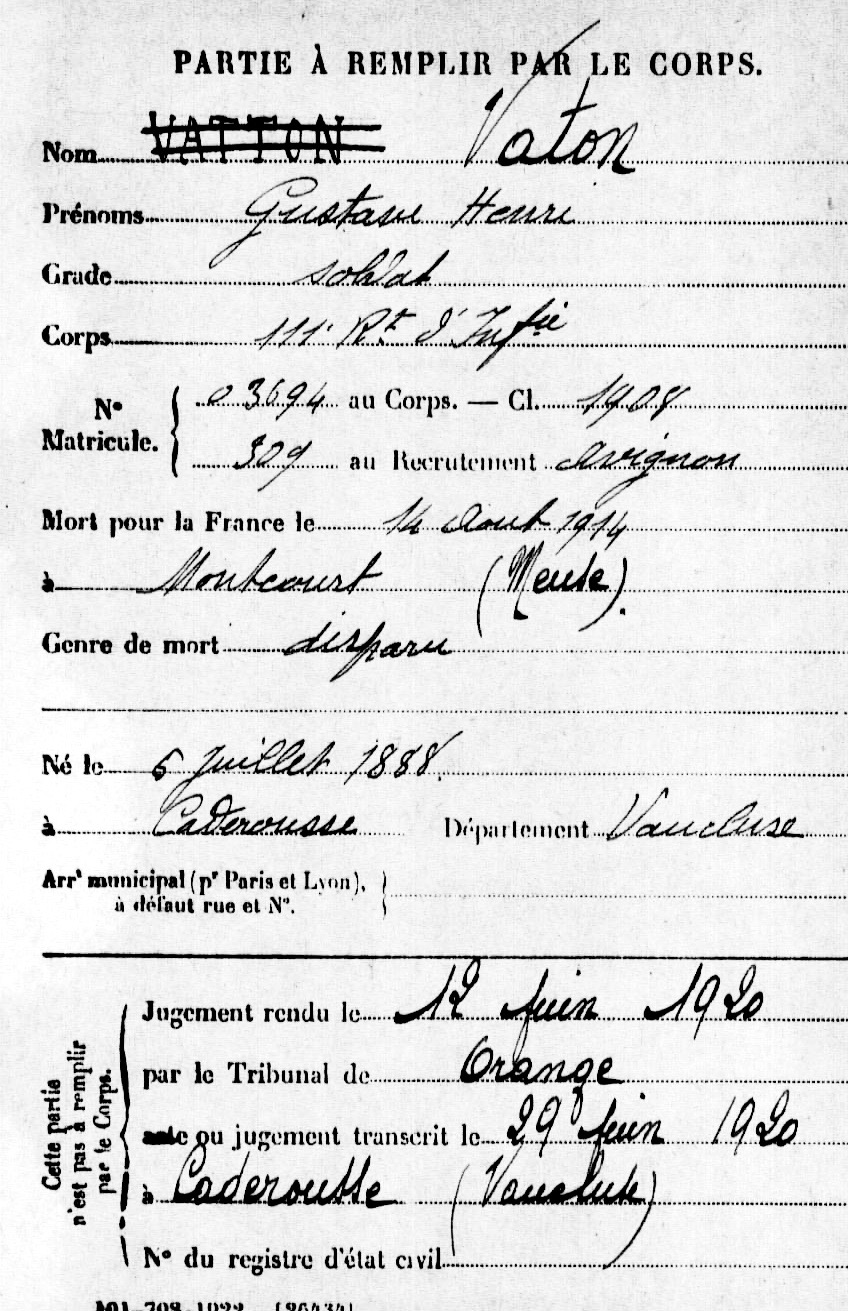 PARTIE À REMPLIR PAR LE CORPS.
Nom VATTON Vaton
Prénoms Gustave Henri
Grade soldat
Corps 111e Rt d'Infie
No Matricule. { 03694 au Corps. — Cl. 1908
309 au Recrutement Avignon
Mort pour la France le 14 Aout 1914
à Montcourt (Meuse).
Genre de mort disparu
Né le 6 Juillet 1888.
à Caderousse Département Vaucluse
Arrt municipal (pr Paris et Lyon), }
à défaut rue et No.
Cette partie n'est pas à remplir par le Corps.
Jugement rendu le 12 Juin 1920
par le Tribunal de Orange
acte ou jugement transcrit le 29 Juin 1920
à Caderousse (Vaucluse)
No du registre d'état civil